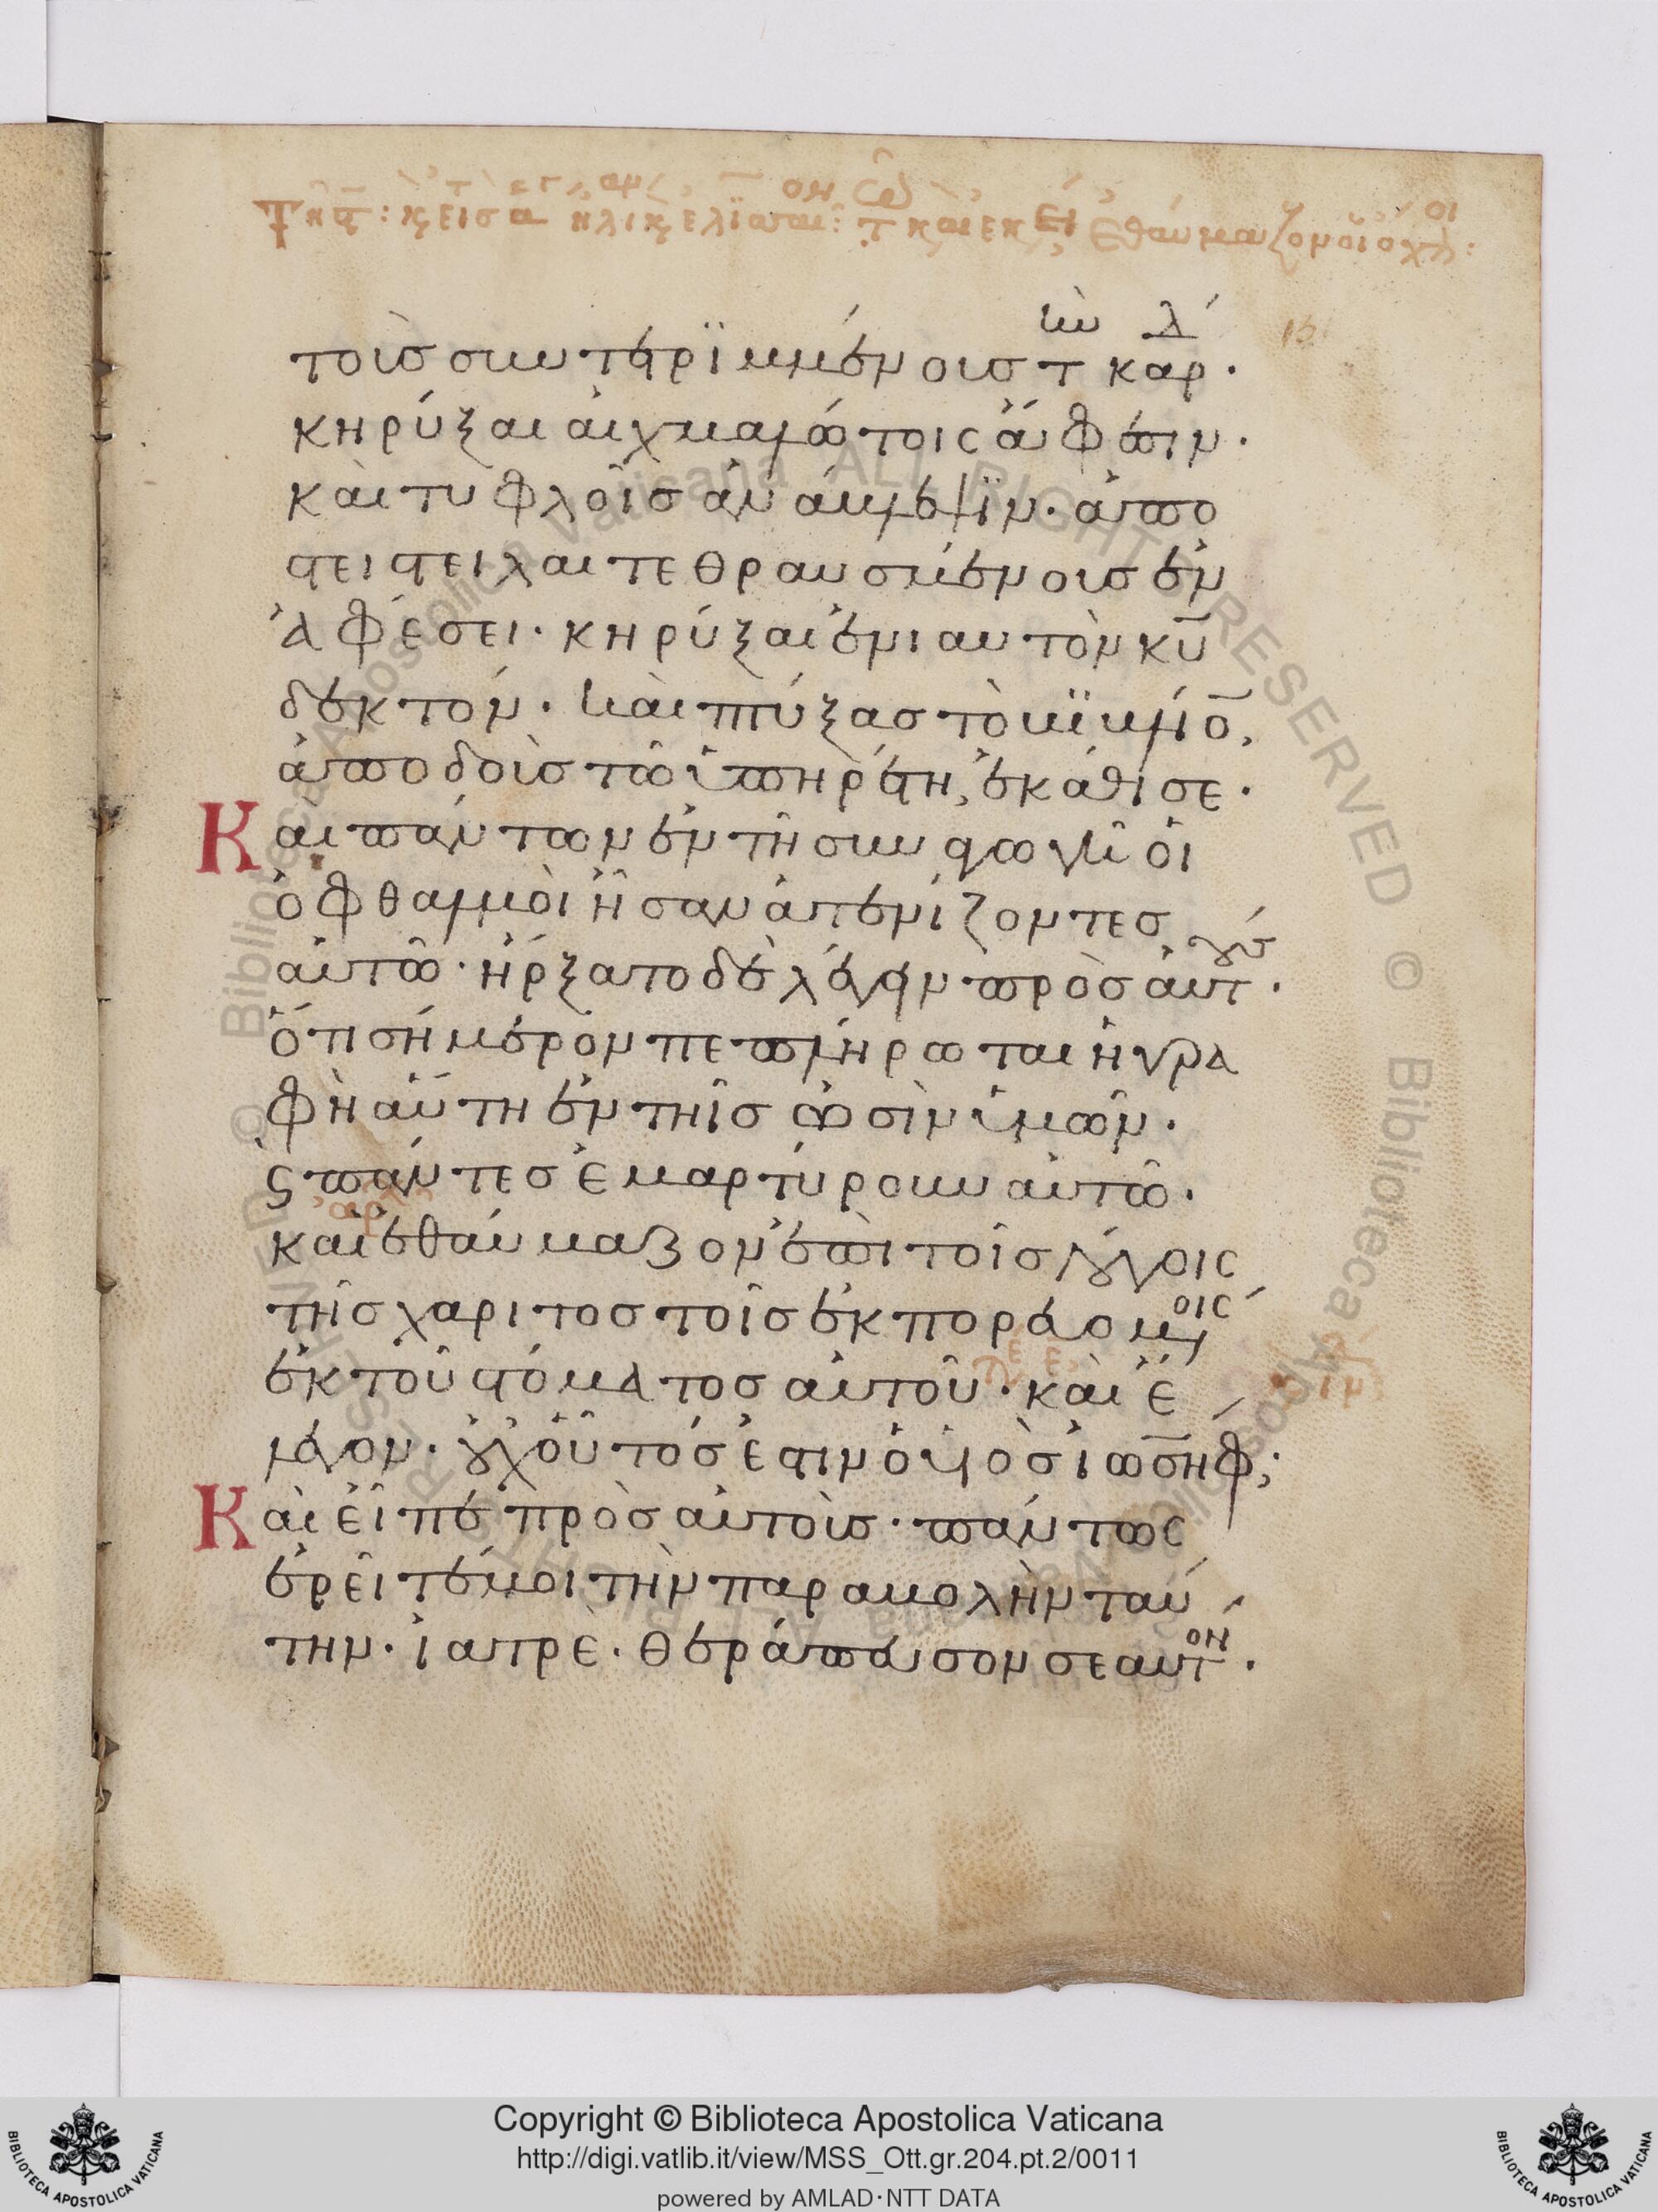 τοὺσ συντετριμμένουσ τὴν καρδ.
κηρύξαι αἰχμαλώτοις ἄφεσιν.
καὶ τυφλοῖσ ἀνάμβλεψϊν. ἀπο
στειστεῖλαι τεθραυσμένουσ ἐν
ἀφέσει. κηρύξαι ἐνιαυτὸν κ̅υ̅
δεκτόν. καὶ πτύξασ τὸ βϊβλίο̅,
ἀποδοὺσ τῶ ὑπηρέτη, ἐκάθισε.
Και πάντων ἐν τῆ συναγωγῆ οἱ
ὀφθαλμοὶ ἦσαν ἀτενίζοντεσ
αὐτῶ. ἤρξατο δὲ λέγειν πρὸσ αὐτούσ.
ὅτι σήμερον πεπλήρωται ἡ γρα
φὴ αὕτη ἐν τοῖσ ὠσὶν ὑμῶν.
ϗ πάντεσ ἐμαρτύρουν αὐτῶ.
καὶ ἐθαύμαζον ἐπὶ τοῖσ λόγοις
τῆσ χάριτοσ τοῖσ ἐκπορευομένοις
ἐκ τοῦ στόματοσ αὐτοῦ. καὶ ἔ
λεγον. οὐχ οὗτόσ ἐστιν ὁ υἱὸσ ἰωσήφ;
Καὶ εἶπε πρὸσ αὐτοὺσ. πάντως
ἐρεῖτέ μοι τὴν παραβολὴν ταύ
την. ἰατρὲ. θεράπευσον σεαυτον.
Copyright © Biblioteca Apostolica Vaticana
http://digi.vatlib.it/view/MSS_Ott.gr.204.pt.2/0011
powered by AMLAD·NTT DATA